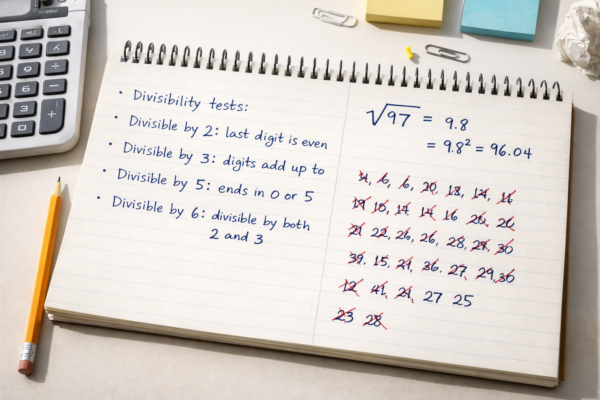 • Divisibility tests:
• Divisible by 2: last digit is even
• Divisible by 3: digits add up to
• Divisible by 5: ends in 0 or 5
• Divisible by 6: divisible by both
2 and 3
√97 = 9.8
= 9.8² = 96.04
6, 6, 20, 18, 14, 16
19 10, 14 14 16 20, 20
21 22, 26, 26, 28, 29, 30
39, 15, 21, 36, 27, 29, 30
12 41 21, 27 25
23 28